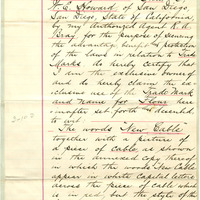 W. C. Howard of San Diego
San Diego, State of California
by my authorized agent
Bray, for the purpose of securing
the advantage, benefit & protection
of the laws in relation to Trade
Marks do hereby certify that
I am the exclusive owner
and do hereby claim the ex-
clusive use of the Trade Mark
and Name for
after set forth & described
to wit
The words New Cable
together with a picture of
a piece of cable, as shown
in the annexed copy thereof
in which the words New Cable
appear in white capital letters
across the piece of cable which
is in red, but the style of the